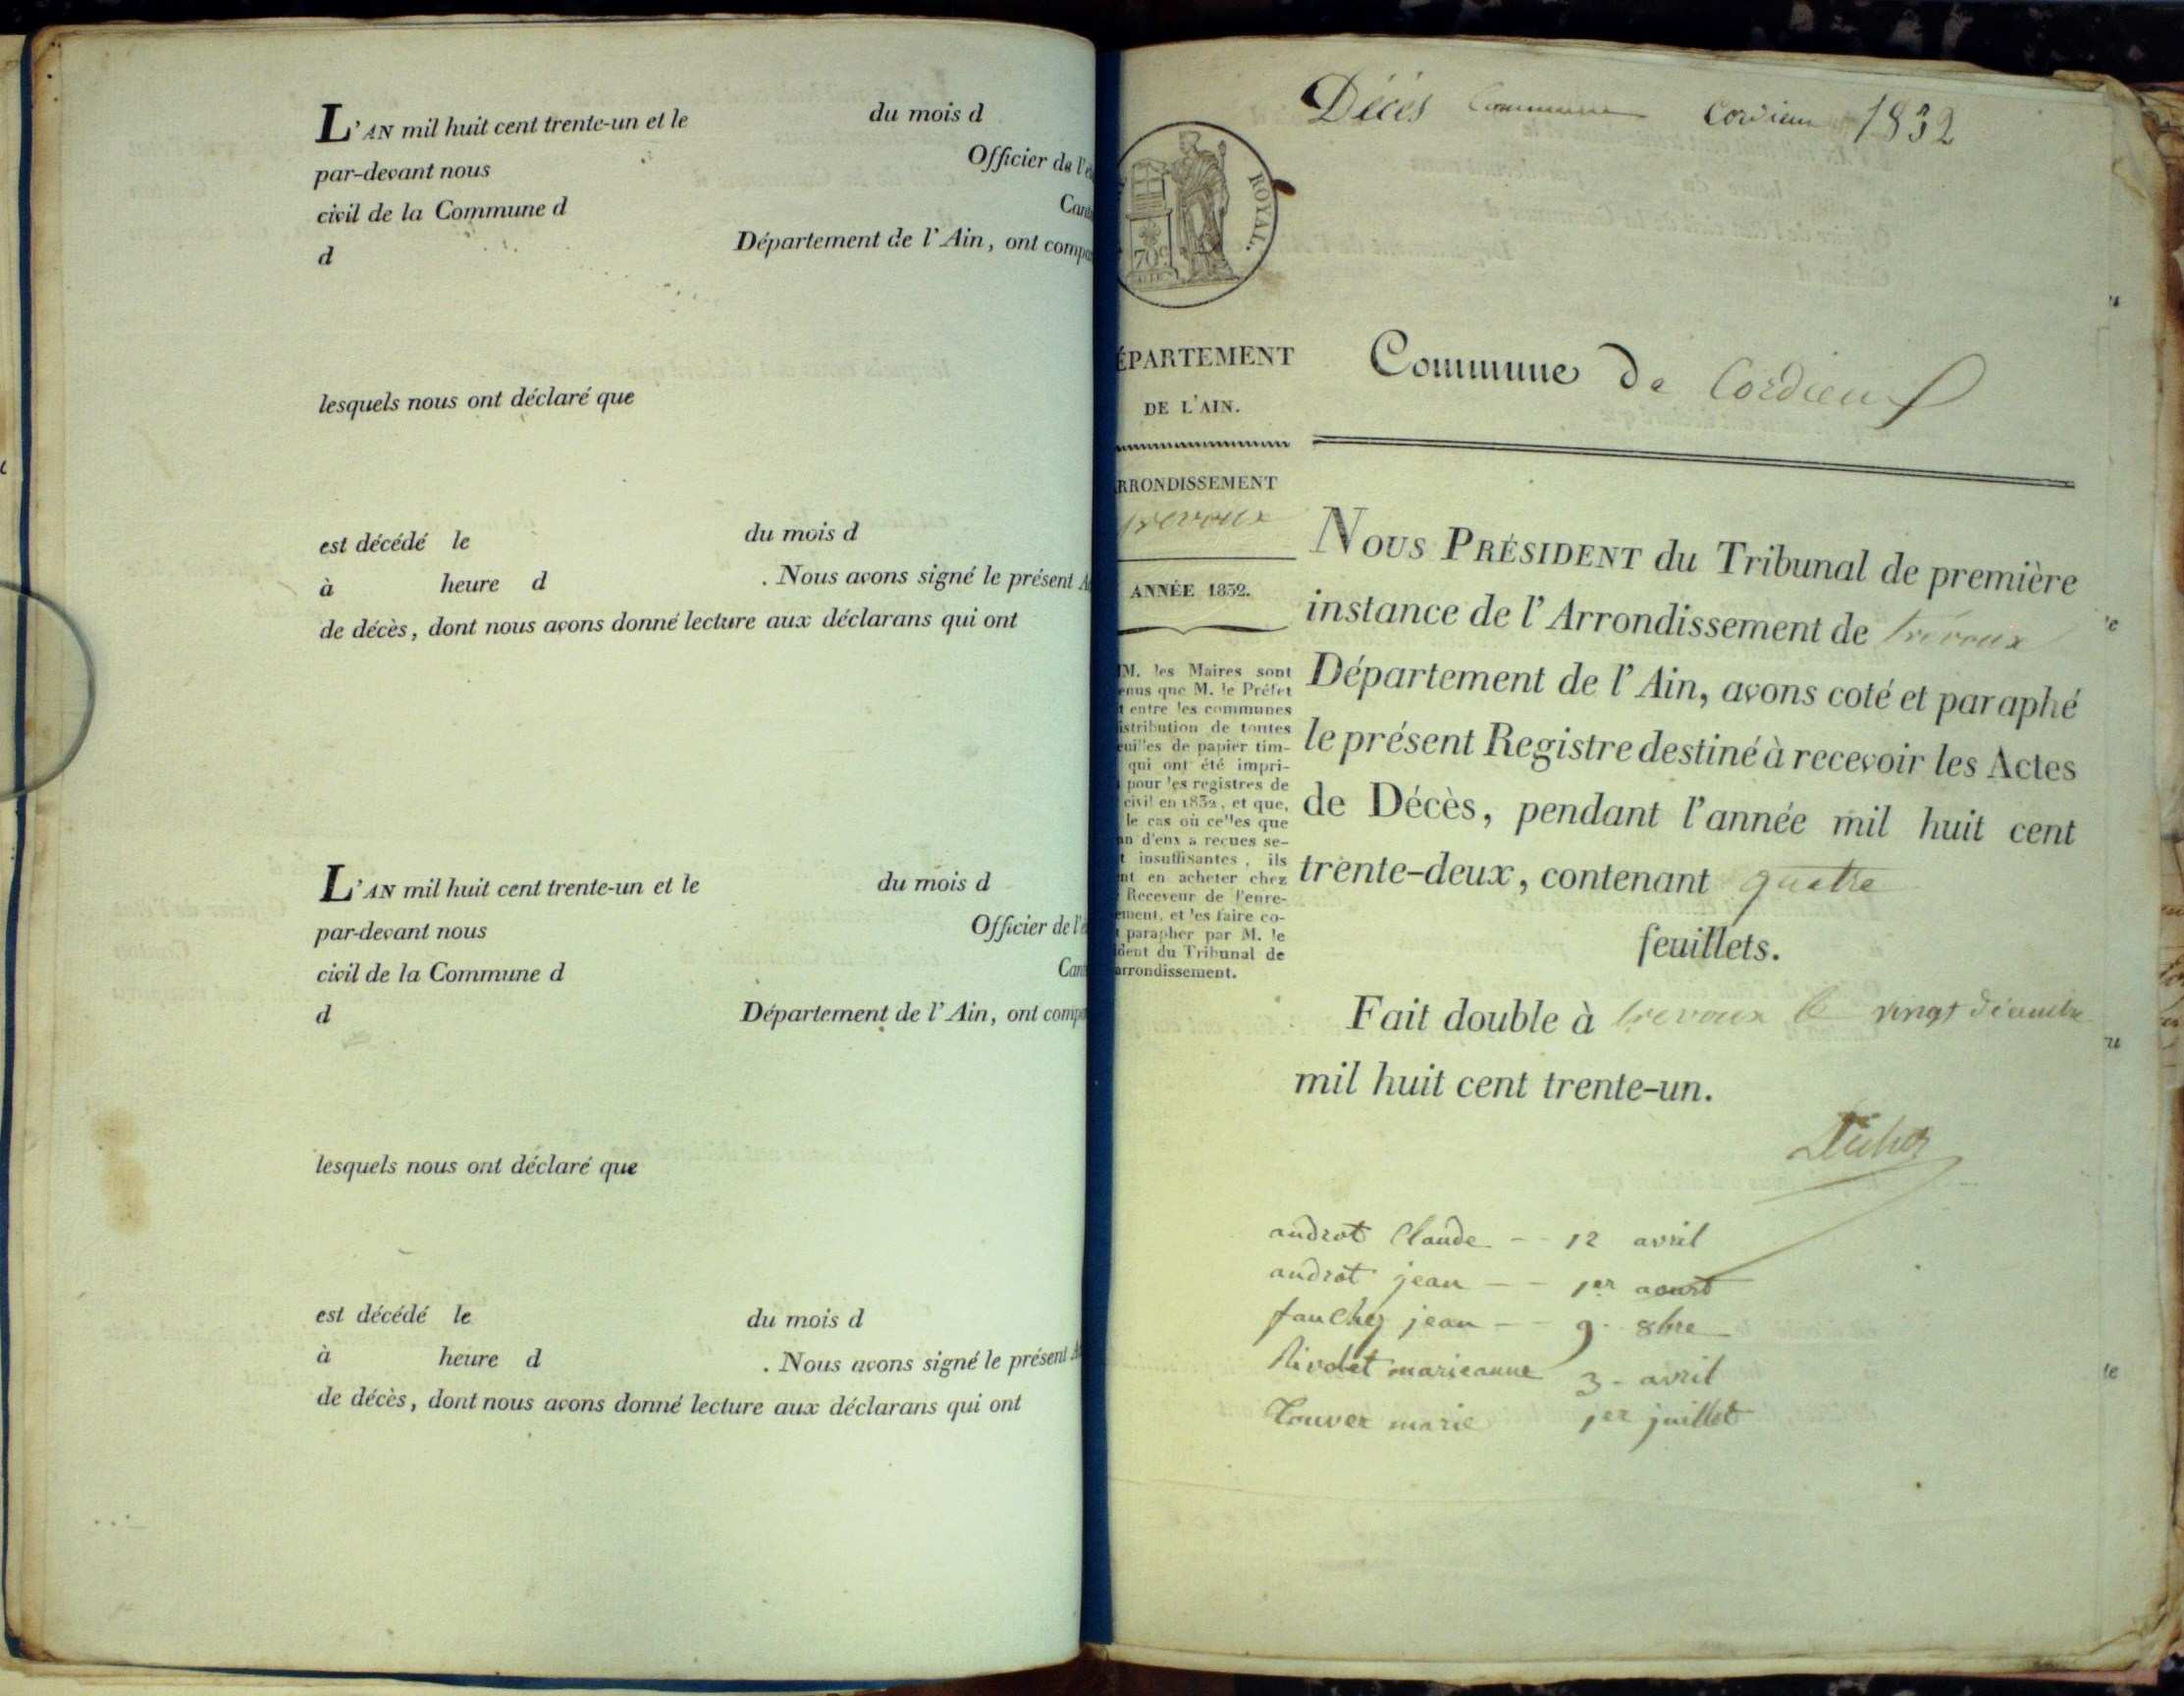 L'AN mil huit cent trente-un et le du mois d
par-devant nous Officier de l'é
civil de la Commune d Cant
d Département de l'Ain, ont compa
lesquels nous ont déclaré que
est décédé le du mois d
à heure d . Nous avons signé le présent A
de décès, dont nous avons donné lecture aux déclarans qui ont
L'AN mil huit cent trente-un et le du mois d
par-devant nous Officier de l'é
civil de la Commune d Can
d Département de l'Ain, ont compa
lesquels nous ont déclaré que
est décédé le du mois d
à heure d . Nous avons signé le présent A
de décès, dont nous avons donné lecture aux déclarans qui ont
Décès Commune Cordieux 1832
ROYAL.
70c
ÉPARTEMENT
DE L'AIN.
RRONDISSEMENT
trevoux
ANNÉE 1832.
M. les Maires sont
enus que M. le Préfet
t entre les communes
istribution de toutes
euilles de papier tim-
qui ont été impri-
pour les registres de
civil en 1832, et que,
le cas où celles que
un d'eux a reçues se-
t insuffisantes, ils
nt en acheter chez
Receveur de l'enre-
ement, et les faire co-
t parapher par M. le
ident du Tribunal de
arrondissement.
Commune de Cordieux
NOUS PRÉSIDENT du Tribunal de première
instance de l'Arrondissement de trévoux
Département de l'Ain, avons coté et paraphé
le présent Registre destiné à recevoir les Actes
de Décès, pendant l'année mil huit cent
trente-deux, contenant quatre
feuillets.
Fait double à trevoux le vingt décembre
mil huit cent trente-un.
androt Claude -- 12 avril
androt jean -- 1er aoust
fauchez jean -- 9. 8bre
Rivolet marieanne 3 - avril
Couver marie 1er juillet